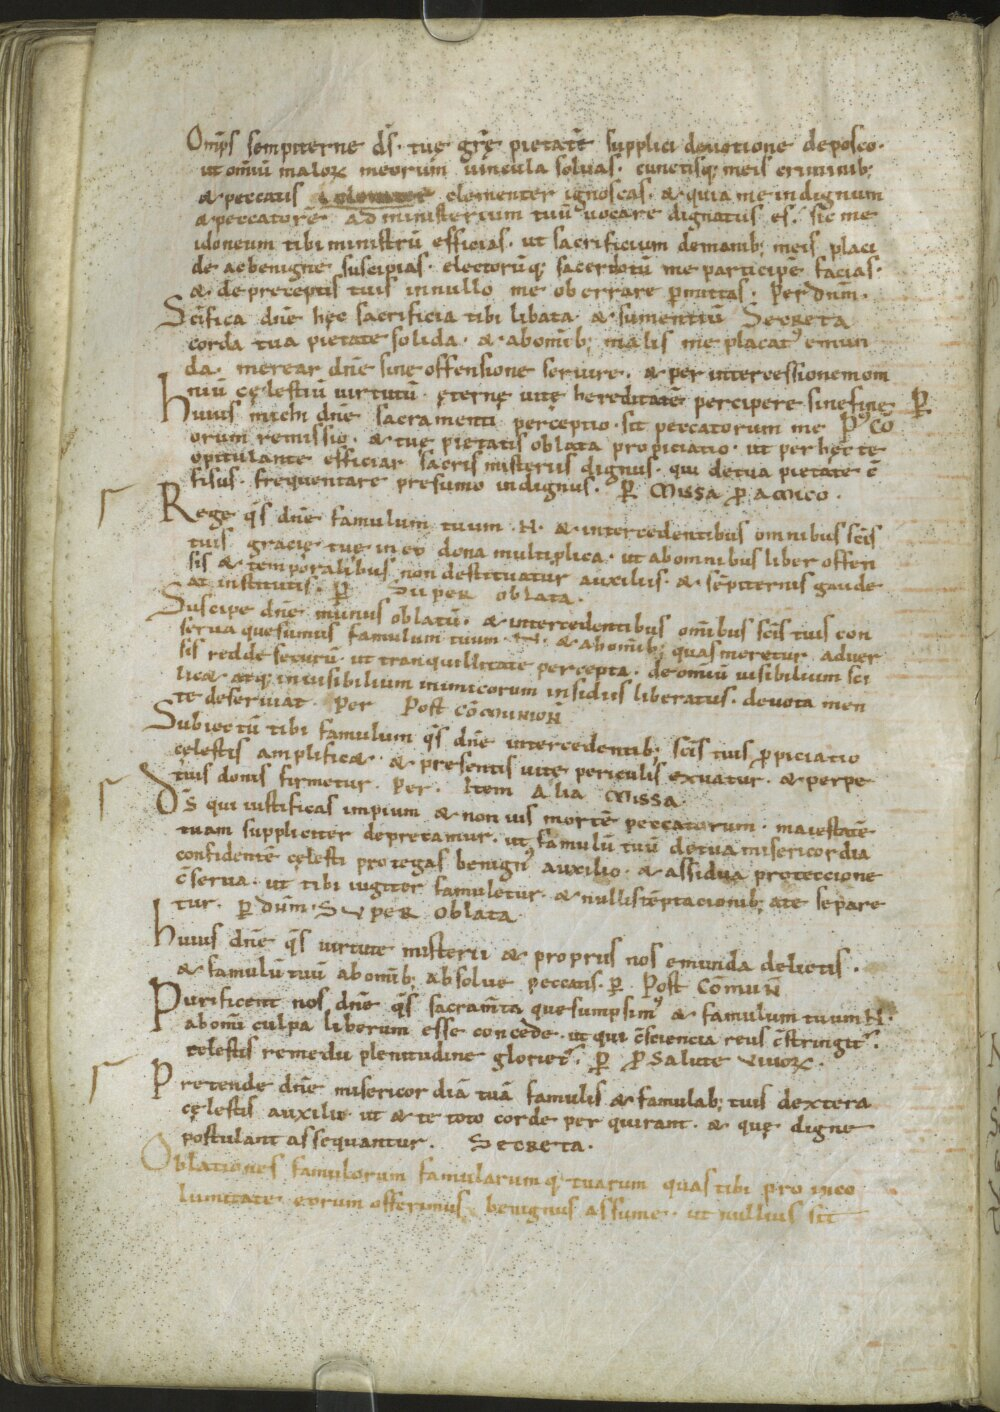 Omp̄s sempiterne d̄s. tuę gr̄ę pietatē supplici deuotione deposco.
ut omīū malorꝝ meorum uincula soluas. cunctisq; meis criminib;
& peccatis clementer ignoscas. & quia me indignum
& peccatorē ad ministerium tuū uocare dignatus es. sic me
idoneum tibi ministrū efficias. ut sacrificium demanib; meis placi
de ac benigne suscipias. electorūq; sacerdotū me participē facias.
& de pręceptis tuis innullo me oberrare ꝑmittas. Per dn̄m.
Sc̄ifica dn̄e hęc sacrificia tibi libata. & sumentiū Secreta
corda tua pietate solida. & abom̄ib; malis me placatꝰ emun
da. merear dn̄e sine offensione seruire. & per intercessionem om
niū cęlestiū uirtutū. ęternę uitę hereditatē percipere sinefine ꝑ
Huius michi dn̄e sacramenti perceptio. sit peccatorum me Pꝰ cō
orum remissio. & tuę pietatis oblata propiciatio. ut per hęc te
opitulante efficiar sacris misteriis dignus. qui detua pietate c̄
fisus. frequentare presumo indignus. ꝑ Missa ꝑ amico.
Rege qs̄ dn̄e famulum tuum .N. & intercedentibus omnibus sc̄is
tuis gracię tuę in eo dona multiplica. ut abomnibus liber offen
sis & temporalibus non destituatur auxiliis. & sēpiternis gaude
at institutis. ꝑ Super oblata.
Suscipe dn̄e munus oblatū. & intercedentibus om̄ibus sc̄is tuis con
serua quesumus famulum tuum .N. & abom̄ib; quas meretur aduer
sis redde securū. ut tranquillitate percepta. deomiū uisibilium sci
lic& atq; inuisibilium inimicorum insidiis liberatus. deuota men
te deseruiat. Per Post cōmunion̄
Subiectū tibi famulum qs̄ dn̄e intercedentib; sc̄is tuis ꝓpiciatio
cęlestis amplific&. & presentis uitę periculis exuatur. & perpe
tuis donis firmetur. Per. Item Alia Missa
D̄s qui iustificas impium & non uis mortē peccatorum. maiestatē
tuam suppliciter deprecamur. ut famulū tuū detua misericordia
confidentē cęlesti protegas benignꝰ auxilio. & assidua protectione
c̄serua. ut tibi iugiter famuletur. & nullis tēptacionib; ate separe
tur. ꝑ dn̄m. Super oblata
Huius dn̄e qs̄ uirtute misterii & propriis nos emunda delictis.
& famulū tuū abom̄ib; absolue peccatis. ꝑ. Post Comun̄
Purificent nos dn̄e qs̄ sacram̄ta que sumpsim̄ꝰ & famulum tuum .N.
abom̄i culpa liberum esse concede. ut qui c̄sciencia reus c̄stringit᷑.
celestis remedii plenitudine gloriet᷑. ꝑ ꝓ salute uiuorꝝ.
Pretende dn̄e misericordiā tuā famulis & famulab; tuis dextera
cęlestis auxilii ut & te toto corde perquirant. & quę digne
postulant assequantur. Secreta.
Oblationes famulorum famularumq; tuarum quas tibi pro inco
lumitate eorum offerimus benignus assume. ut nullius sit